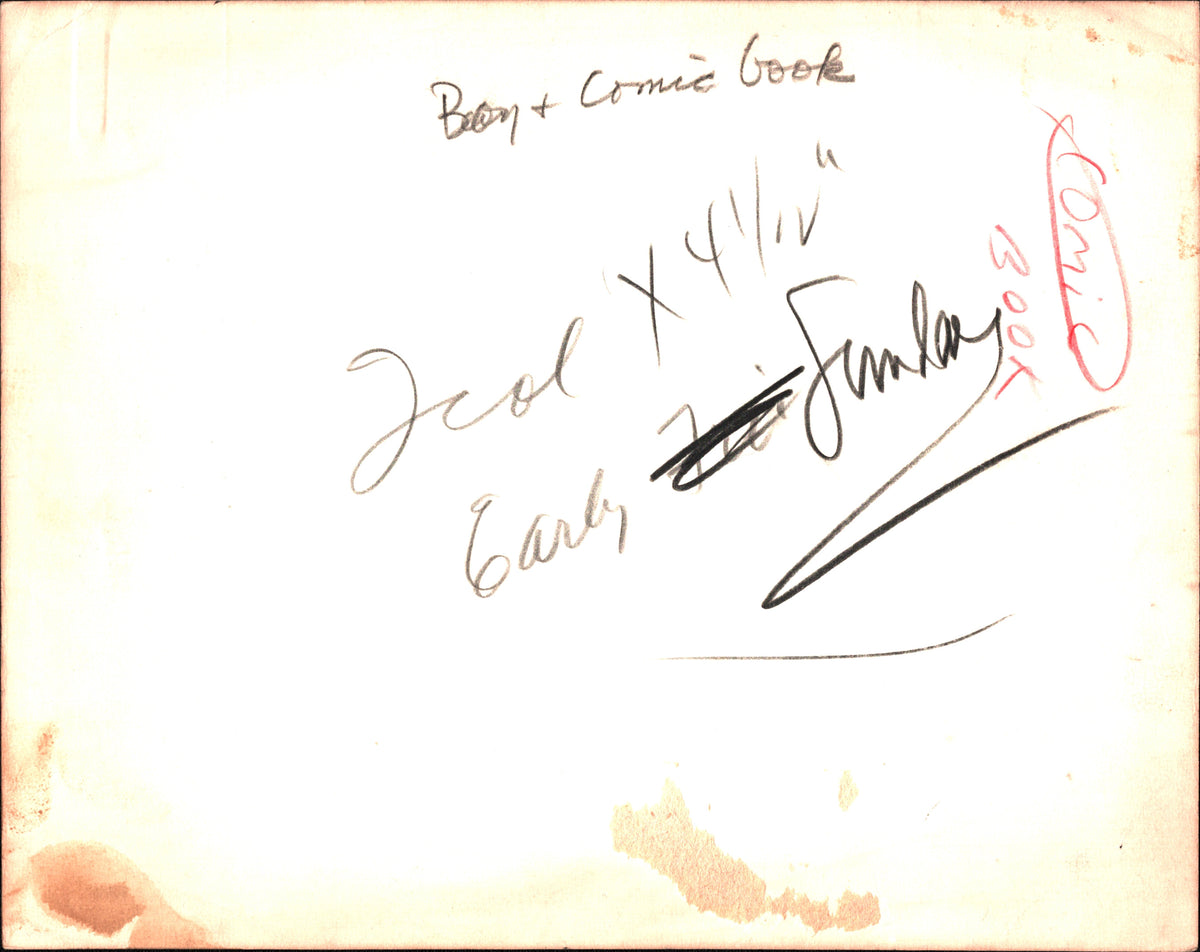 Boy + Comic book
2 col X 4 1/2"
Early Sunday
Comic
BOOK